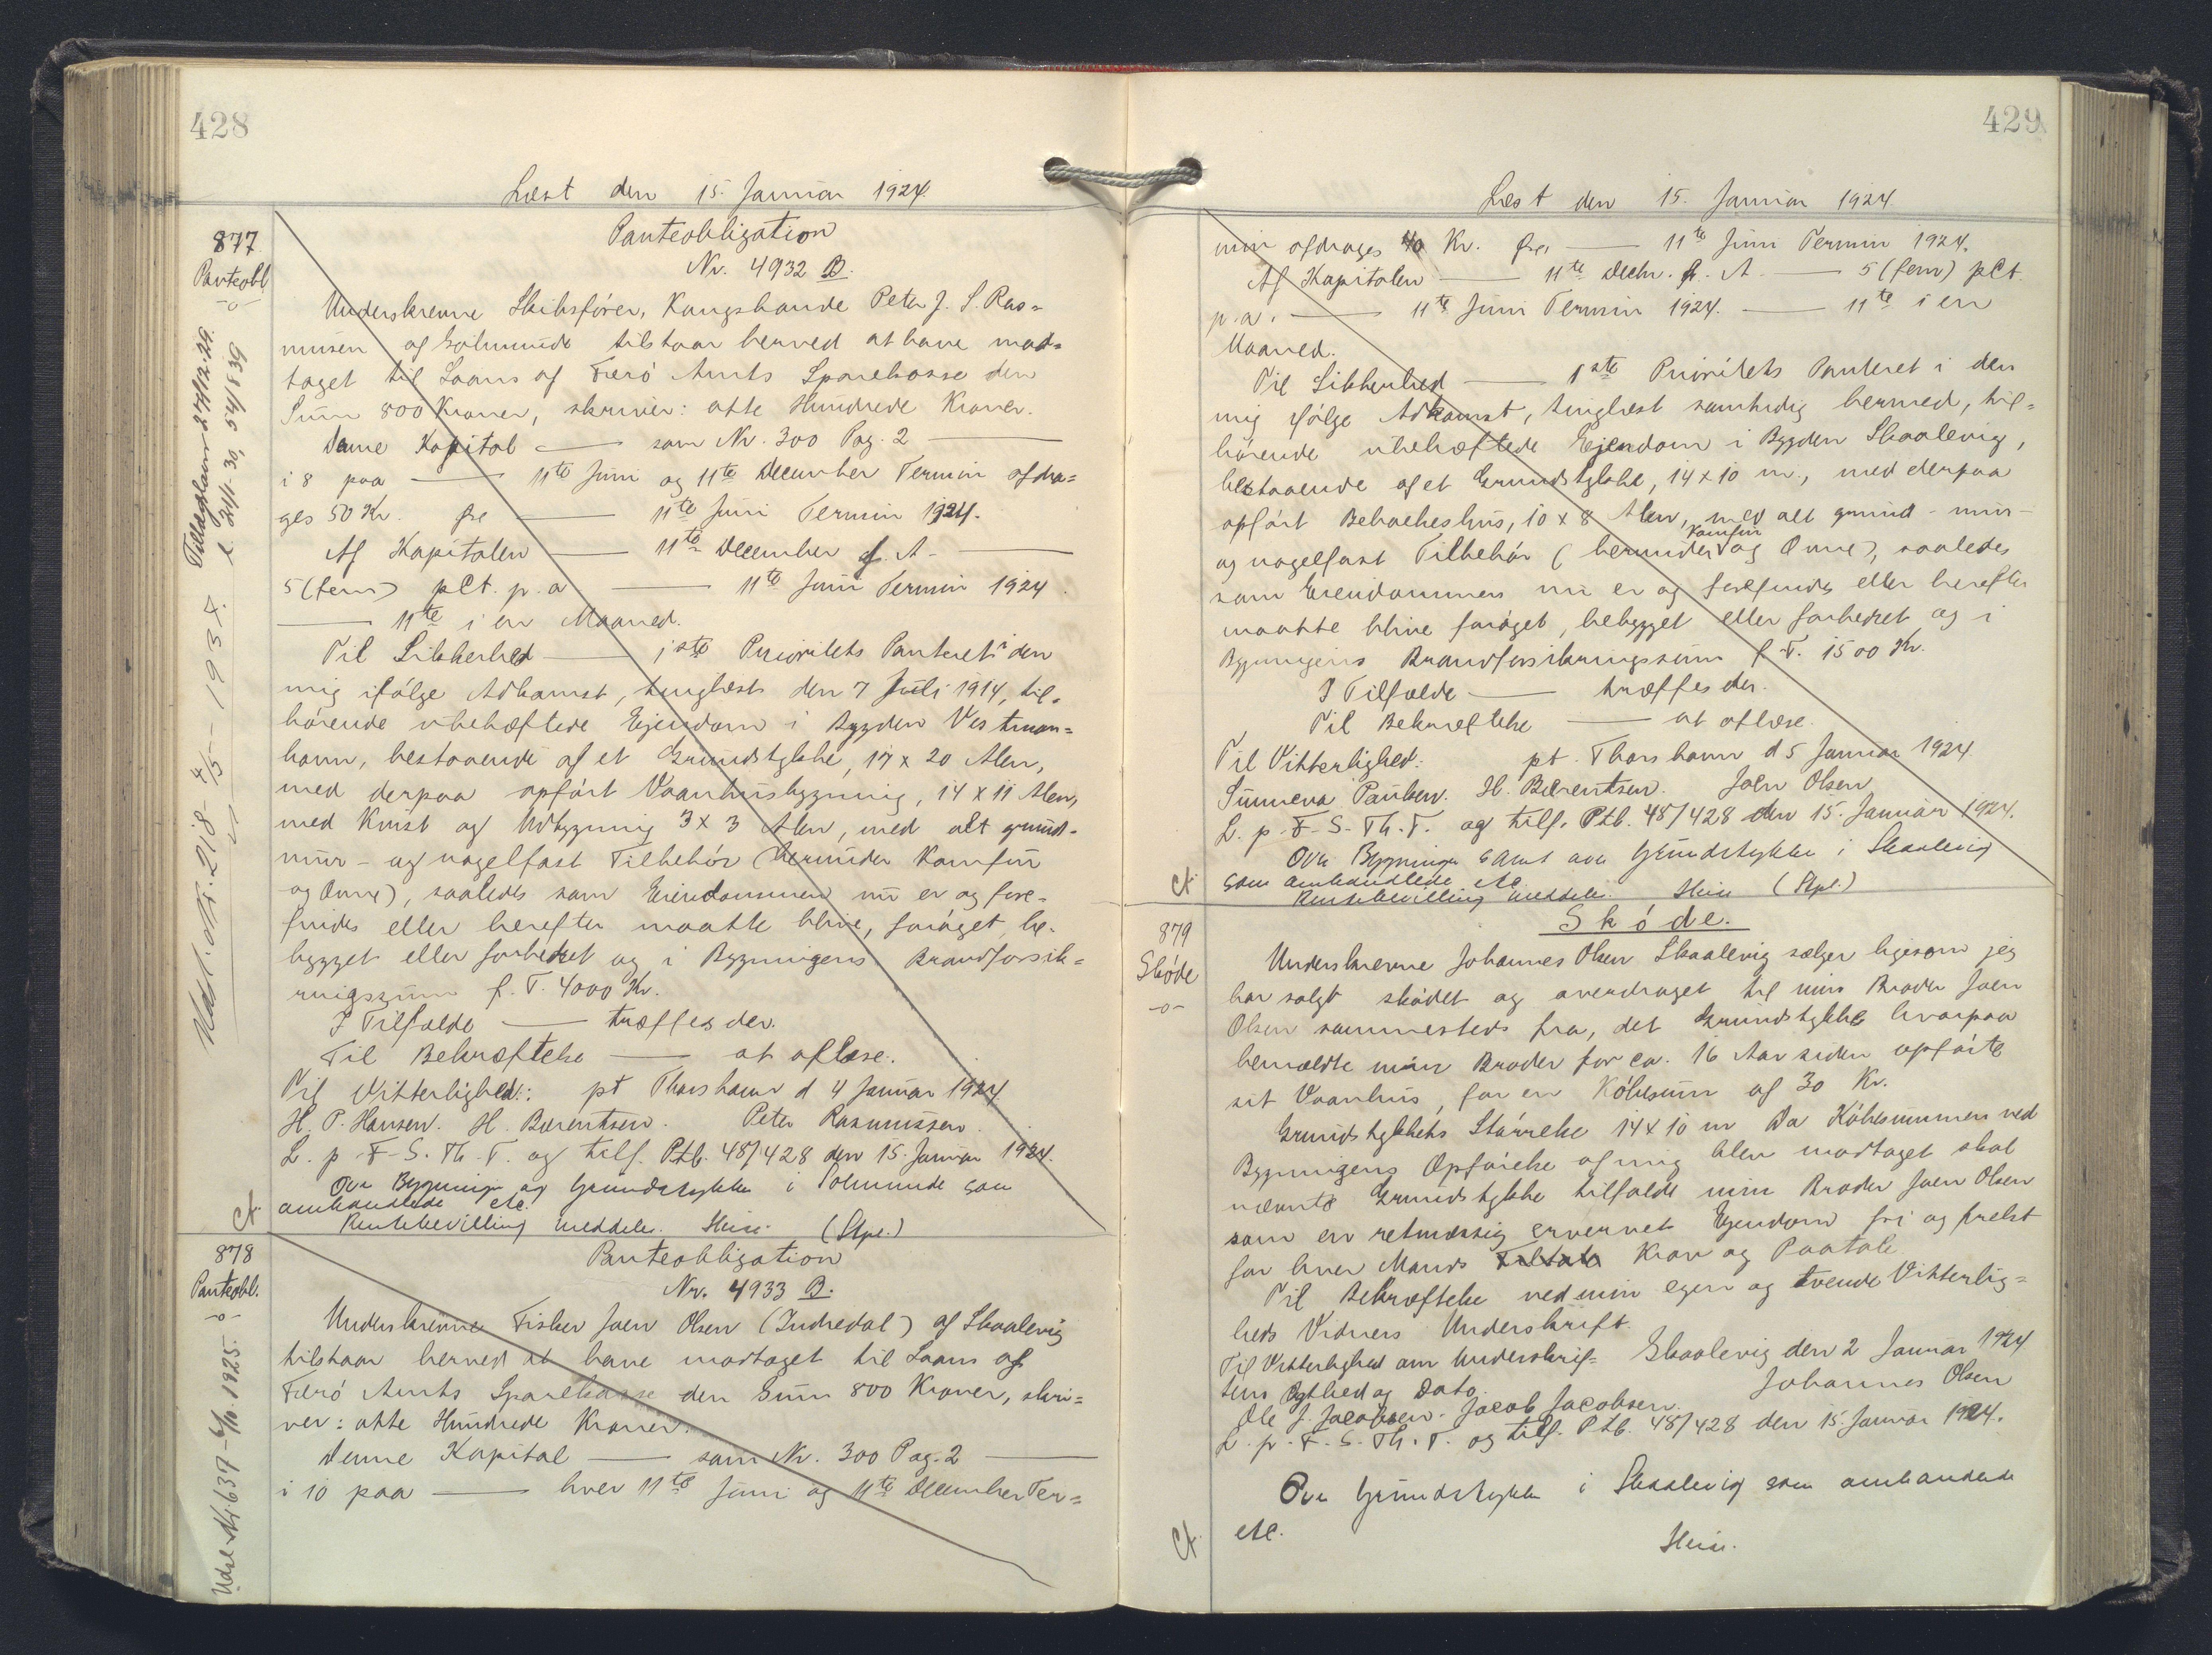 428
Læst den 15. Januar 1924.
877
Panteobl.
-o-
Tillægslaan 27/12-29.
l. 21/1-30, 54/839
Udsl. Nr. 218 - 4/5 - 1934.
Panteobligation
Nr. 4932 B.
Underskrevne Skibsfører, Kongsbonde Peter J. S. Ras=
musen af Solmunde tilstaar herved at have mod=
taget til Laans af Færø Amts Sparekasse den
Sum 800 Kroner, skriver: otte Hundrede Kroner.
Denne Kapital — som Nr. 300 Pag. 2 —
i 8 paa — 11te Juni og 11te December Termin afdra=
ges 50 Kr. — 11te Juni Termin 1924.
Af Kapitalen — 11te December f. A. —
5 (fem) pCt. p. a — 11te Juni Termin 1924
— 11te i en Maaned.
Til Sikkerhed — 1ste Prioritets Panteret i den
mig ifølge Adkomst, tinglæst den 7 Juli 1914, til=
hørende ubehæftede Ejendom i Bygden Vestman=
havn, bestaaende af et Grundstykke, 17 x 20 Alen,
med derpaa opført Vaanhusbygning, 14 x 11 Alen,
med Kvist og Udbygning 3 x 3 Alen, med alt grund-
mur- og nagelfast Tilbehør (herunder Komfur
og Ovne), saaledes som Eiendommen nu er og fore=
findes eller herefter maatte blive, forøget be-
bygget eller forbedret og i Bygningens Brandforsik=
ringssum f. T. 4000 Kr.
I Tilfælde — træffes der.
Til Bekræftelse — at aflæse.
Til Vitterlighed: pt Thorshavn d 4 Januar 1924
H. P. Hansen. H. Bærentsen. Peter Rasmussen.
L. p. F. S. Th. T. og tilf. Ptb. 48/428 den 15. Januar 1924.
Ova Bygninger og Grundstykke i Solmunde som
omhandlede etc.
Rentebevilling meddeles. Heise. (Stpl.)
Ct.
878
Panteobl.
-o-
Udsl. Nr. 637 - 6/10. 1925.
Panteobligation
Nr. 4933 B.
Underskrevne Fisker Joen Olsen (Indredal) af Skaalevig
tilstaar herved at have modtaget til Laans af
Færø Amts Sparekasse den Sum 800 Kroner, skri=
ver: otte Hundrede Kroner.
Denne Kapital — som Nr. 300 Pag. 2 —
i 10 paa — hver 11te Juni og 11te December Ter=
429
Læst den 15. Januar 1924
min afdrages 40 Kr. — 11te Juni Termin 1924.
Af Kapitalen — 11te Decbr. f. A. — 5 (fem) pCt.
p. a. — 11te Juni Termin 1924. — 11te i en
Maaned.
Til Sikkerhed — 1ste Prioritets Panteret i den
mig ifølge Adkomst, tinglæst samtidig hermed, til=
hørende ubehæftede Ejendom i Bygden Skaalevig,
bestaaende af et Grundstykke, 14 x 10 m., med derpaa
opført Beboelseshus, 10 x 8 Alen, med alt grund- mur-
og nagelfast Tilbehør (herunder Komfur og Ovne), saaledes
som Eiendommen nu er og forefindes eller herefter
maatte blive forøget, bebygget eller forbedret og i
Bygningens Brandforsikringssum f. T. 1500 Kr.
I Tilfælde — træffes der.
Til Bekræftelse — at aflæse.
Til Vitterlighed: pt. Thorshavn d 5 Januar 1924.
Sunneva Paulsen. H. Bærentsen. Joen Olsen
L. p. F. S. Th. T. og tilf. Ptb. 48/428 den 15. Januar 1924.
Ova Bygninger samt ova Grundstykke i Skaalevig
som omhandlede etc.
Rentebevilling meddeles. Heise (Stpl.)
Ct.
879
Skøde
-o-
Skøde.
Underskrevne Johannes Olsen Skaalevig sælger ligesom jeg
har solgt skødet og overdraget til min Broder Joen
Olsen sammesteds fra, det Grundstykke hvorpaa
bemeldte min Broder for ca. 16 Aar siden opførte
sit Vaanhus, for en Købesum af 30 Kr.
Grundstykkets Størrelse 14 x 10 m Da Købesummen ved
Bygningens Opførelse af mig blev modtaget skal
nævnte Grundstykke tilfalde min Broder Joen Olsen
som en retmæssig erhvervet Ejendom fri og frelst
for hver Mands Krav og Paatale.
Til Bekræftelse ved min egen og tvende Vitterlig=
heds Vidners Underskrift.
Til Vitterlighed om Underskrif= Skaalevig den 2 Januar 1924
tens Ægthed og Dato. Johannes Olsen
Ole J. Jacobsen. Jacob Jacobsen.
L. p. F. S. Th. T. og tilf. Ptb. 48/428 den 15. Januar 1924.
Ova Grundstykke i Skaalevig som omhandlede
etc.
Heise.
Ct.